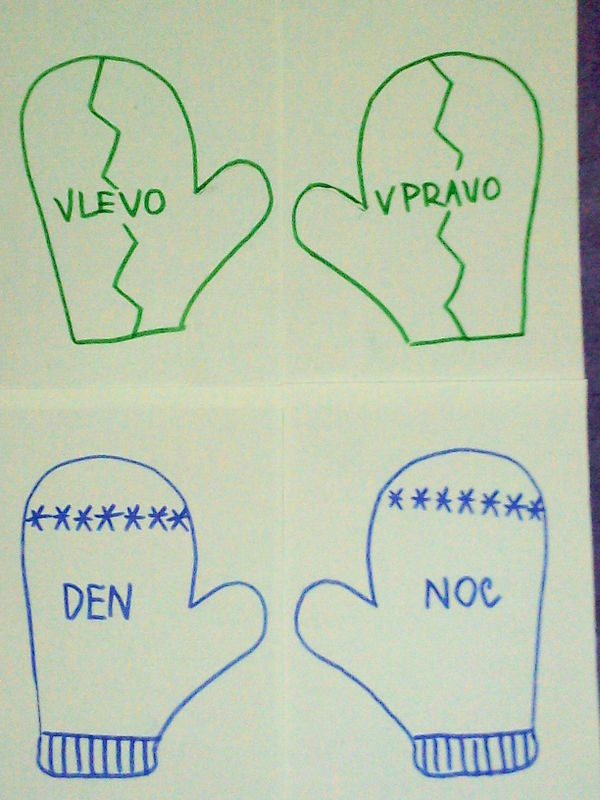 VLEVO
VPRAVO
DEN
NOC